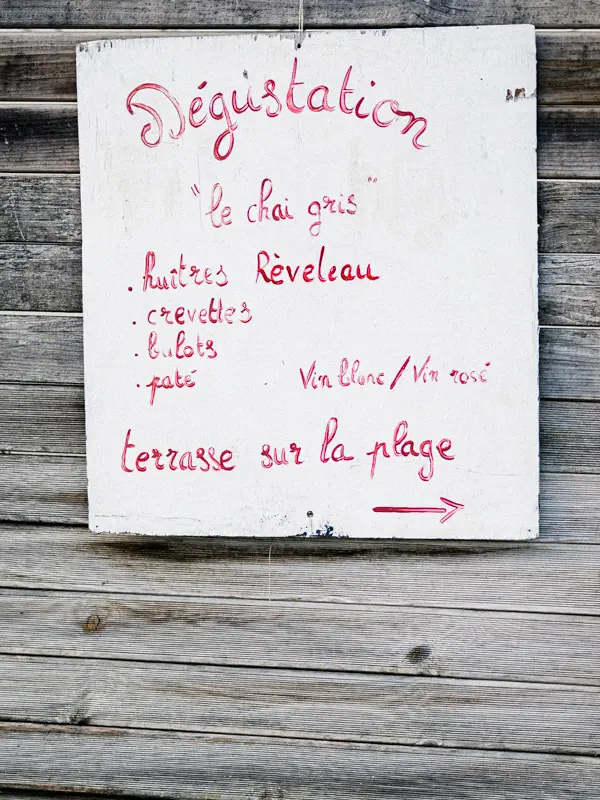 Dégustation
"le chai gris"
. huîtres Rèveleau
. crevettes
. bulots
. paté
Vin blanc / Vin rosé
terrasse sur la plage